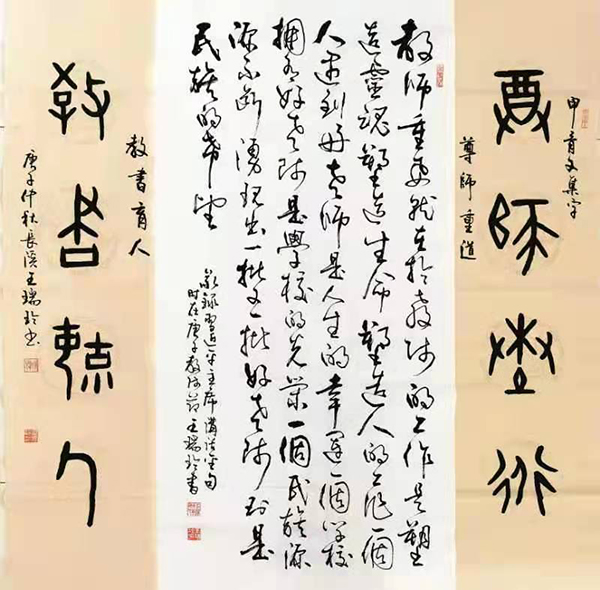 甲骨文集字
尊師重道
尊師重道
教師重要就在於教师的工作是塑
造靈魂塑造生命塑造人的工作一個
人遇到好老師是人生的幸運一個学校
擁有好老师是學校的光榮一個民族源
源不断湧現出一批又一批好老师則是
民族的希望
敬録習近平主席講話金句
时在庚子教师節王瑞玲書
教書育人
教書育人
庚子仲秋長溪王瑞玲書